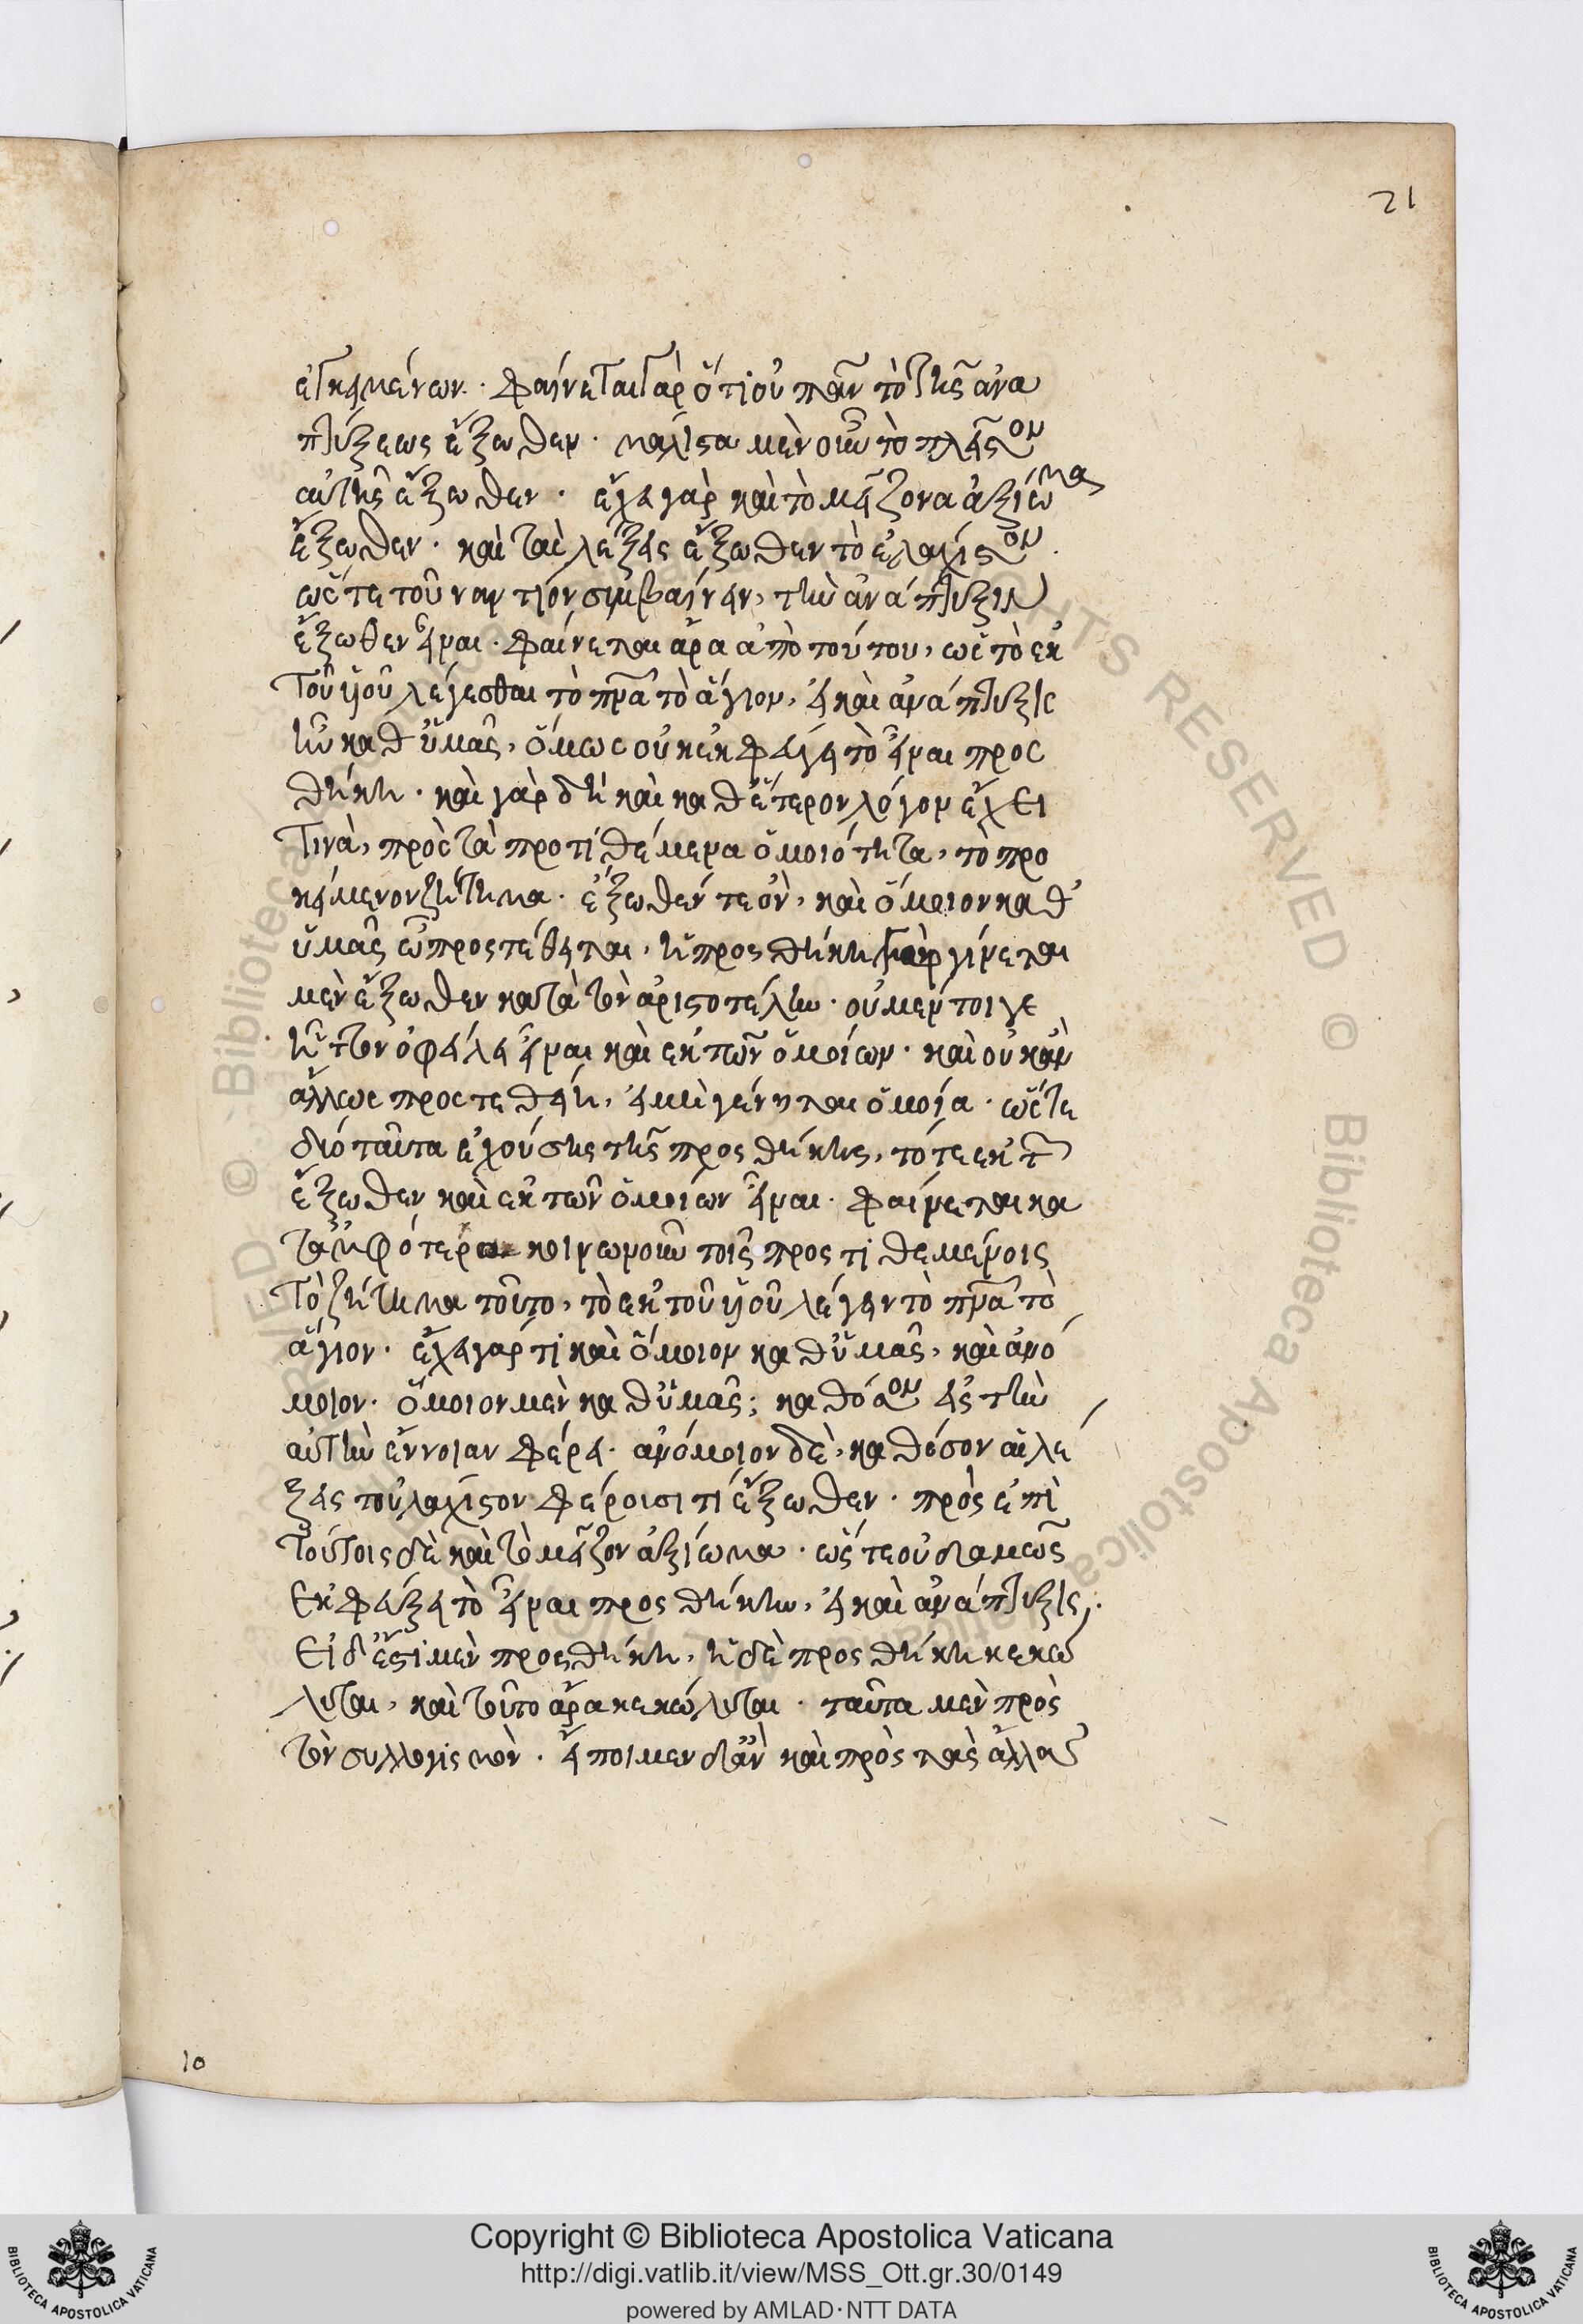 21
ἐγκειμένων. φαίνεται γὰρ ὅτι οὐ πᾶν τὸ τῆς ἀνα
πτύξεως ἔξωθεν. μάλιστα μὲν οὖν τὸ πλεῖστον
αὐτῆς ἔξωθεν. εἶχε γὰρ καὶ τὸ μείζονα ἀξίωμα
ἔξωθεν. καὶ τὰς λέξεις ἔξωθεν τὸ ἐλάχιστον.
ὥστε τοὐναντίον συμβαίνειν, τὴν ἀνάπτυξιν
ἔξωθεν εἶναι. φαίνεται ἄρα ἀπὸ τούτου, ὡς τὸ ἐκ
τοῦ υἱοῦ λέγεσθαι τὸ πνα τὸ ἅγιον, εἰ καὶ ἀνάπτυξις
ἦν καθ' ὑμᾶς, ὅμως οὐκ ἐκφεύγει τὸ εἶναι προσ
θήκη. καὶ γὰρ δὴ καὶ καθ' ἕτερον λόγον ἔχει
τινὰ, πρὸς τὰ προτιθέμενα ὁμοιότητα, τὸ προ
κείμενον ζήτημα. ἔξωθέν τε ὂν, καὶ ὅμοιον καθ'
ὑμᾶς ᾧ προστέθειται. ἡ προσθήκη γὰρ γίνεται
μὲν ἔξωθεν κατὰ τὸν ἀριστοτέλην. οὐ μέντοι γε
ἧττον ὀφείλει εἶναι καὶ ἐκ τῶν ὁμοίων. καὶ οὐκ ἂν
ἄλλως προστεθείη, εἰ μὴ γένηται ὁμοία. ὥστε
διὸ ταῦτα ἐχούσης τῆς προσθήκης, τό τε ἐκ τ
ἔξωθεν καὶ ἐκ τῶν ὁμοίων εἶναι. φαίνεται κα
τ' ἀμφότερα κοινωνοῦν τοῖς προστιθεμένοις
τὸ ζήτημα τοῦτο, τὸ ἐκ τοῦ υἱοῦ λέγειν τὸ πνα τὸ
ἅγιον. εἶχε γάρ τι καὶ ὅμοιον καθ' ὑμᾶς, καὶ ἀνό
μοιον. ὅμοιον μὲν καθ' ὑμᾶς; καθόσον εἰς τὴν
αὐτὴν ἔννοιαν φέρει. ἀνόμοιον δὲ, καθόσον αἱ λέ
ξεις τοὐλάχιστον φέρουσι τί ἔξωθεν. πρὸς ἐπὶ
τούτοις δὲ καὶ τὸ μεῖζον ἀξίωμα. ὥστε οὐδαμῶς
ἐκφεύξει τὸ εἶναι προσθήκην, εἰ καὶ ἀνάπτυξις.
Εἰ δ' ἔστι μὲν προσθήκη, ἡ δὲ προσθήκη κεκώ
λυται, καὶ τοῦτο ἄρα κεκώλυται. ταῦτα μὲν πρὸς
τὸν συλλογισμὸν. εἴποιμεν δ' ἂν καὶ πρὸς τὰς ἄλλας
10
© Biblioteca Apostolica Vaticana
Copyright © Biblioteca Apostolica Vaticana
http://digi.vatlib.it/view/MSS_Ott.gr.30/0149
powered by AMLAD·NTT DATA
BIBLIOTECA APOSTOLICA VATICANA
BIBLIOTECA APOSTOLICA VATICANA